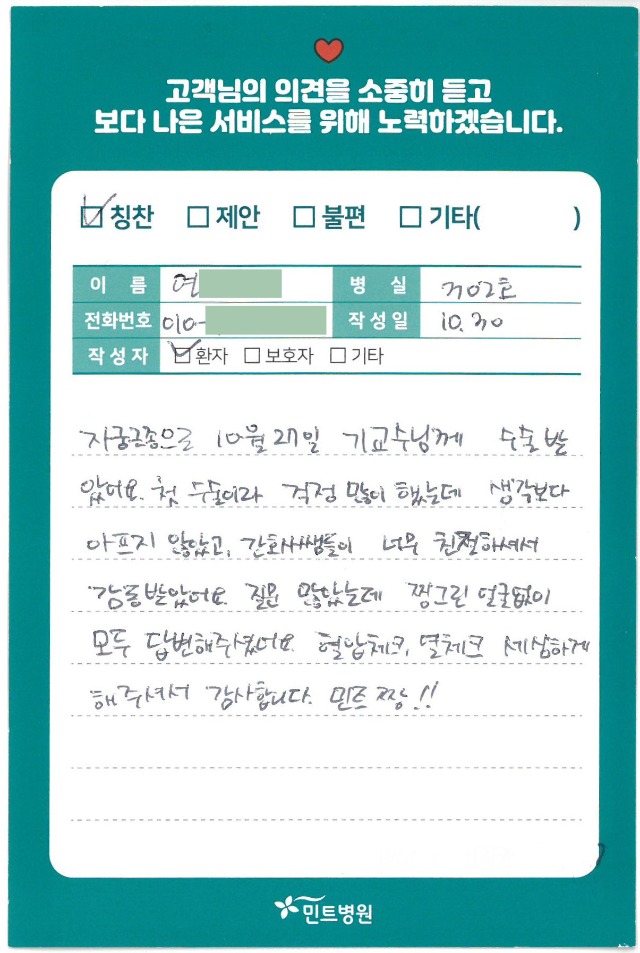 고객님의 의견을 소중히 듣고
보다 나은 서비스를 위해 노력하겠습니다.
☑ 칭찬 ☐ 제안 ☐ 불편 ☐ 기타( )
이 름 연 병 실 702호
전화번호 010- 작성일 10.30
작성자 ☑ 환자 ☐ 보호자 ☐ 기타
자궁근종으로 10월 27일 기교수님께 수술 받
았어요. 첫 수술이라 걱정 많이 했는데 생각보다
아프지 않았고, 간호사쌤들이 너무 친절하셔서
감동받았어요. 질문 많았는데 찡그린 얼굴없이
모두 답변해주셨어요. 혈압체크, 열체크 세심하게
해주셔서 감사합니다. 민트 짱!!
민트병원